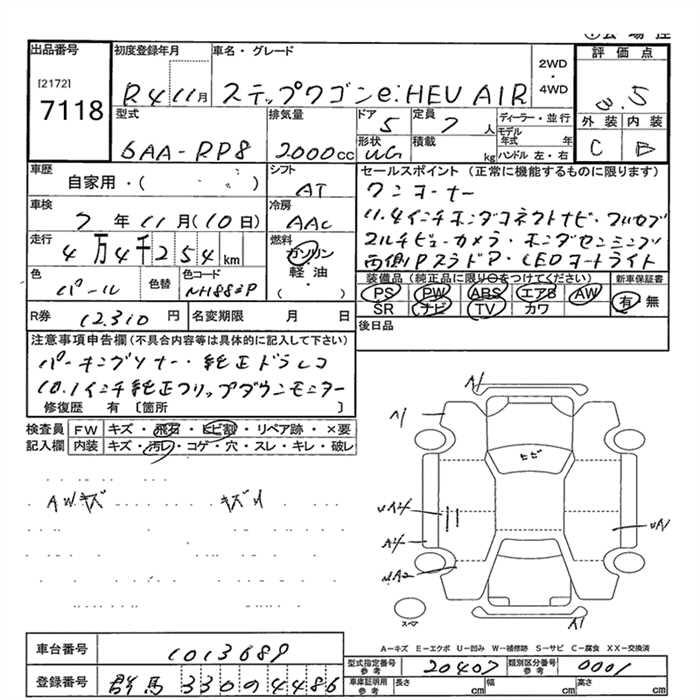 出品番号
[2172]
7118
初度登録年月
R4 11月
車名・グレード
ステップワゴンe:HEV AIR
2WD
・
4WD
評価点
3.5
外装 内装
C B
型式
6AA-RP8
排気量
2000cc
ドア
5
定員
7人
形状
WG
積載
kg
ディーラー・並行
モデル年式 年
ハンドル 左・右
車歴
自家用・( )
シフト
AT
車検
7年11月(10日)
冷房
AAC
走行
4万4千254km
燃料
ガソリン
軽油
( )
色
パール
色替
色コード
NH883P
R券
12,310円
名変期限 月 日
セールスポイント(正常に機能するものに限ります)
ワンオーナー
11.4インチホンダコネクトナビ・フルセグ
マルチビューカメラ・ホンダセンシング
両側Pスラドア・LEDヘッドライト
装備品(純正品に限り○をつけてください)
新車保証書
PS PW ABS エアB AW
SR ナビ TV カワ
有 無
後日品
注意事項申告欄(不具合内容等は具体的に記入して下さい)
パーキングソナー・純正ドラレコ
10.1インチ純正フリップダウンモニター
修復歴 有 〔箇所 〕
検査員記入欄
FW キズ・飛石・ヒビ割・リペア跡・×要
内装 キズ・汚レ・コゲ・穴・スレ・キレ・破レ
AWキズ
A1
A1
ヒビ
UA4
UA1
A4
A1
スペア
A-キズ E-エクボ U-凹み W-補修跡 S-サビ C-腐食 XX-交換済
車台番号
1013689
登録番号
群馬 330 0 4486
型式指定番号
参考
20407
類別区分番号
参考
0001
車庫証明用
参考
長さ cm
幅 cm
高さ cm